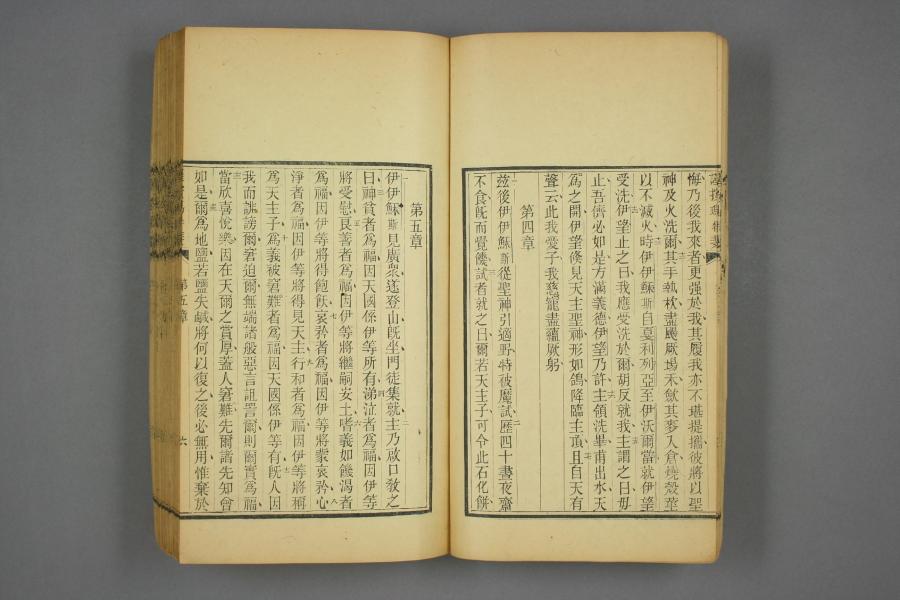 悔乃後我來者更强於我其履我亦不堪提攜彼將以聖
神及火洗爾其手執杴盡颺厥場禾斂其麥入倉燒殼草
以不滅火時伊伊穌斯自戛利列亞至伊沃爾當就伊望
受洗伊望止之曰我應受洗於爾胡反就我主謂之曰毋
止吾儕必如是方滿義德伊望乃許主領洗畢甫出水天
爲之開伊望倐見天主聖神形如鴿降臨主頂且自天有
聲云此我愛子我慈寵盡蘊厥躬
第四章
茲後伊伊穌斯從聖神引適野特被魔試歴四十晝夜齋
不食旣而覺饑試者就之曰爾若天主子可令此石化餅
第五章
伊伊穌斯見廣衆遂登山旣坐門徒集就主乃啟口敎之
曰神貧者爲福因天國係伊等所有涕泣者爲福因伊等
將受慰良善者爲福因伊等將繼嗣安土嗜義如饑渴者
爲福因伊等將得飽飫哀矜者爲福因伊等將蒙哀矜心
淨者爲福因伊等將得見天主行和者爲福因伊等將稱
爲天主子爲義被窘難者爲福因天國係伊等有旣人因
我而誹謗爾窘迫爾無端諸般惡言詛詈爾則爾實爲福
當欣喜悅樂因在天爾之賞厚蓋人窘難先爾諸先知曾
如是爾爲地鹽若鹽失鹹將何以復之後必無用惟棄於
第五章
六